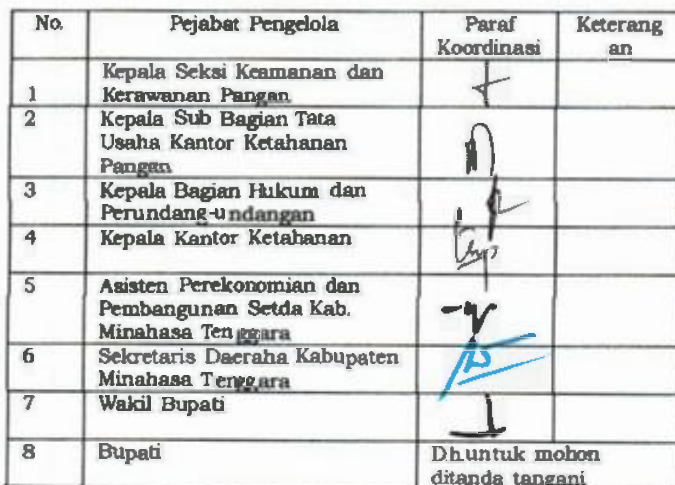 No. Pejabat Pengelola Paraf Keterang
Koordinasi an
Kepala Seksi Keamanan dan
1 Kerawanan Pangan
2 Kepala Sub Bagian Tata
Usaha Kantor Ketahanan
Pangan
3 Kepala Bagian Hukum dan
Perundang-undangan
4 Kepala Kantor Ketahanan
5 Asisten Perekonomian dan
Pembangunan Setda Kab.
Minahasa Tenggara
6 Sekretaris Daeraha Kabupaten
Minahasa Tenggara
7 Wakil Bupati
8 Bupati Dh.untuk mohon
ditanda tangani